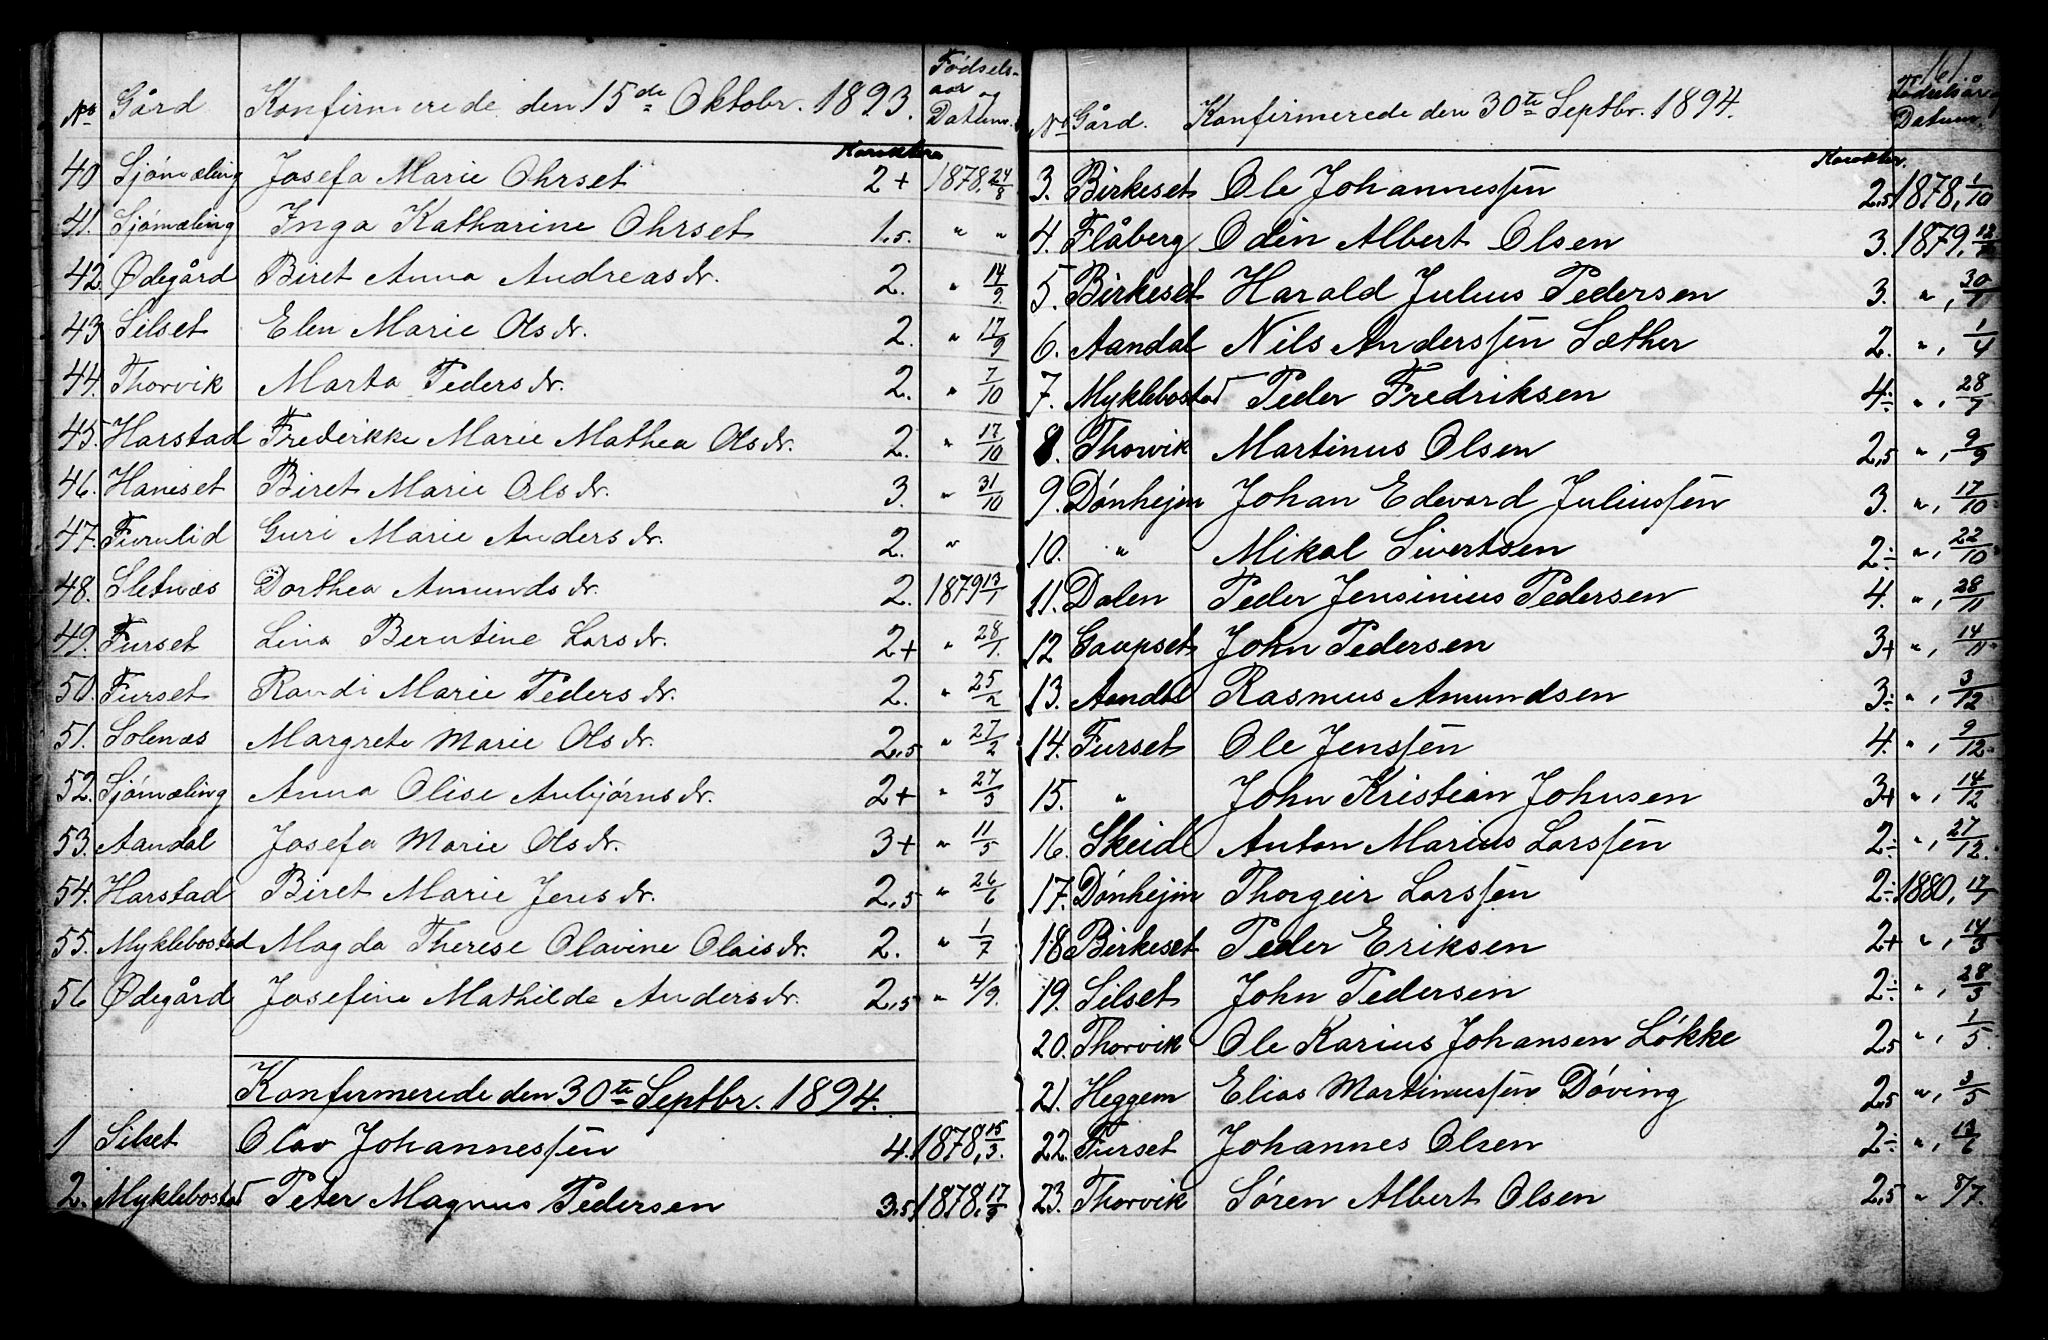 No Gård Konfirmerede den 15de Oktobr. 1893. Fødsels-aar og Datum.
Karakter
40 Sjømæling Josefa Marie Ohrset 2+ 1878, 24/8
41. Sjømæling Inga Katharine Ohrset 1,5. " "
42 Ødegård Biret Anna Andreasdr. 2. " 14/9
43 Silset Elen Marie Olsdr. 2. " 17/9
44. Thorvik Marta Pedersdr. 2. " 7/10
45. Harstad Frederikke Marie Mathea Olsdr. 2. " 17/10
46. Haneset Biret Marie Olsdr. 3. " 31/10
47. Furulid Guri Marie Andersdr. 2. "
48. Sletnæs Dorthea Amundsdr. 2. 1879 13/1
49. Furset Lina Berntine Larsdr. 2+ " 28/1.
50. Furset Randi Marie Pedersdr. 2. " 25/2
51. Solenæs Margrete Marie Olsdr. 2,5 " 27/2
52. Sjømæling Anna Olise Anbjørnsdr. 2+ " 27/3
53. Aandal Josefa Marie Olsdr. 3+ " 11/5
54. Harstad Biret Marie Jensdr. 2,5 " 26/6
55. Myklebostad Magda Therese Olavine Olaisdr. 2. " 1/7
56 Ødegård Josefine Mathilde Andersdr. 2,5 " 4/9.
Konfirmerede den 30te Septbr. 1894.
1 Silset Olav Johannessen 4. 1878, 15/3.
2. Myklebostad Peter Magnus Pedersen 3,5 1878, 17/9
161.
No Gård. Konfirmerede den 30te Septbr. 1894. Fødselsår og Datum.
Karakter
3. Birkeset Ole Johannessen 2,5 1878, 1/10
4. Flåberg Odin Albert Olsen 3. 1879,
5. Birkeset Harald Julius Pedersen 3. ", 30/1
6. Aandal Nils Anderssen Sæther 2. ", 1/4
7. Myklebostad Peder Fredriksen 4÷ ", 28/7
8. Thorvik Martinus Olsen 2,5 ", 9/9
9. Dønhejm Johan Edevard Juliussen 3. ", 17/10
10. " Mikal Sivertsen 2÷ ", 22/10
11. Dalen Peder Jensinius Pedersen 4. ", 28/11
12 Gaupset John Pedersen 3+ ", 14/11
13. Aandal Rasmus Amundsen 3÷ ", 3/12
14. Furset Ole Jenssen 4. ", 9/12.
15. " John Kristian Johnsen 3+ ", 14/12
16. Skeidl Anton Marius Larssen 2÷ ", 27/12.
17. Dønhejm Thorgeir Larssen 2÷ 1880, 17/1
18 Birkeset Peder Eriksen 2+ ", 14/3
19. Silset John Pedersen 2÷ ", 28/3
20. Thorvik Ole Karius Johansen Løkke 2,5 ", 1/5.
21. Heggem Elias Martinussen Døving 2,5 ", 3/5
22. Furset Johannes Olsen 2÷ ", 13/6
23. Thorvik Søren Albert Olsen 2,5 " 8/7.